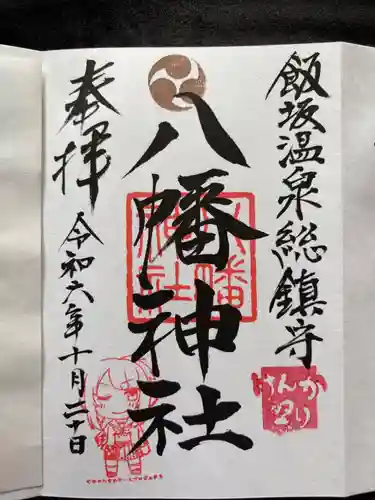 飯坂温泉総鎮守
八幡神社
奉拝
令和六年十月二十日
八幡神社
けんか